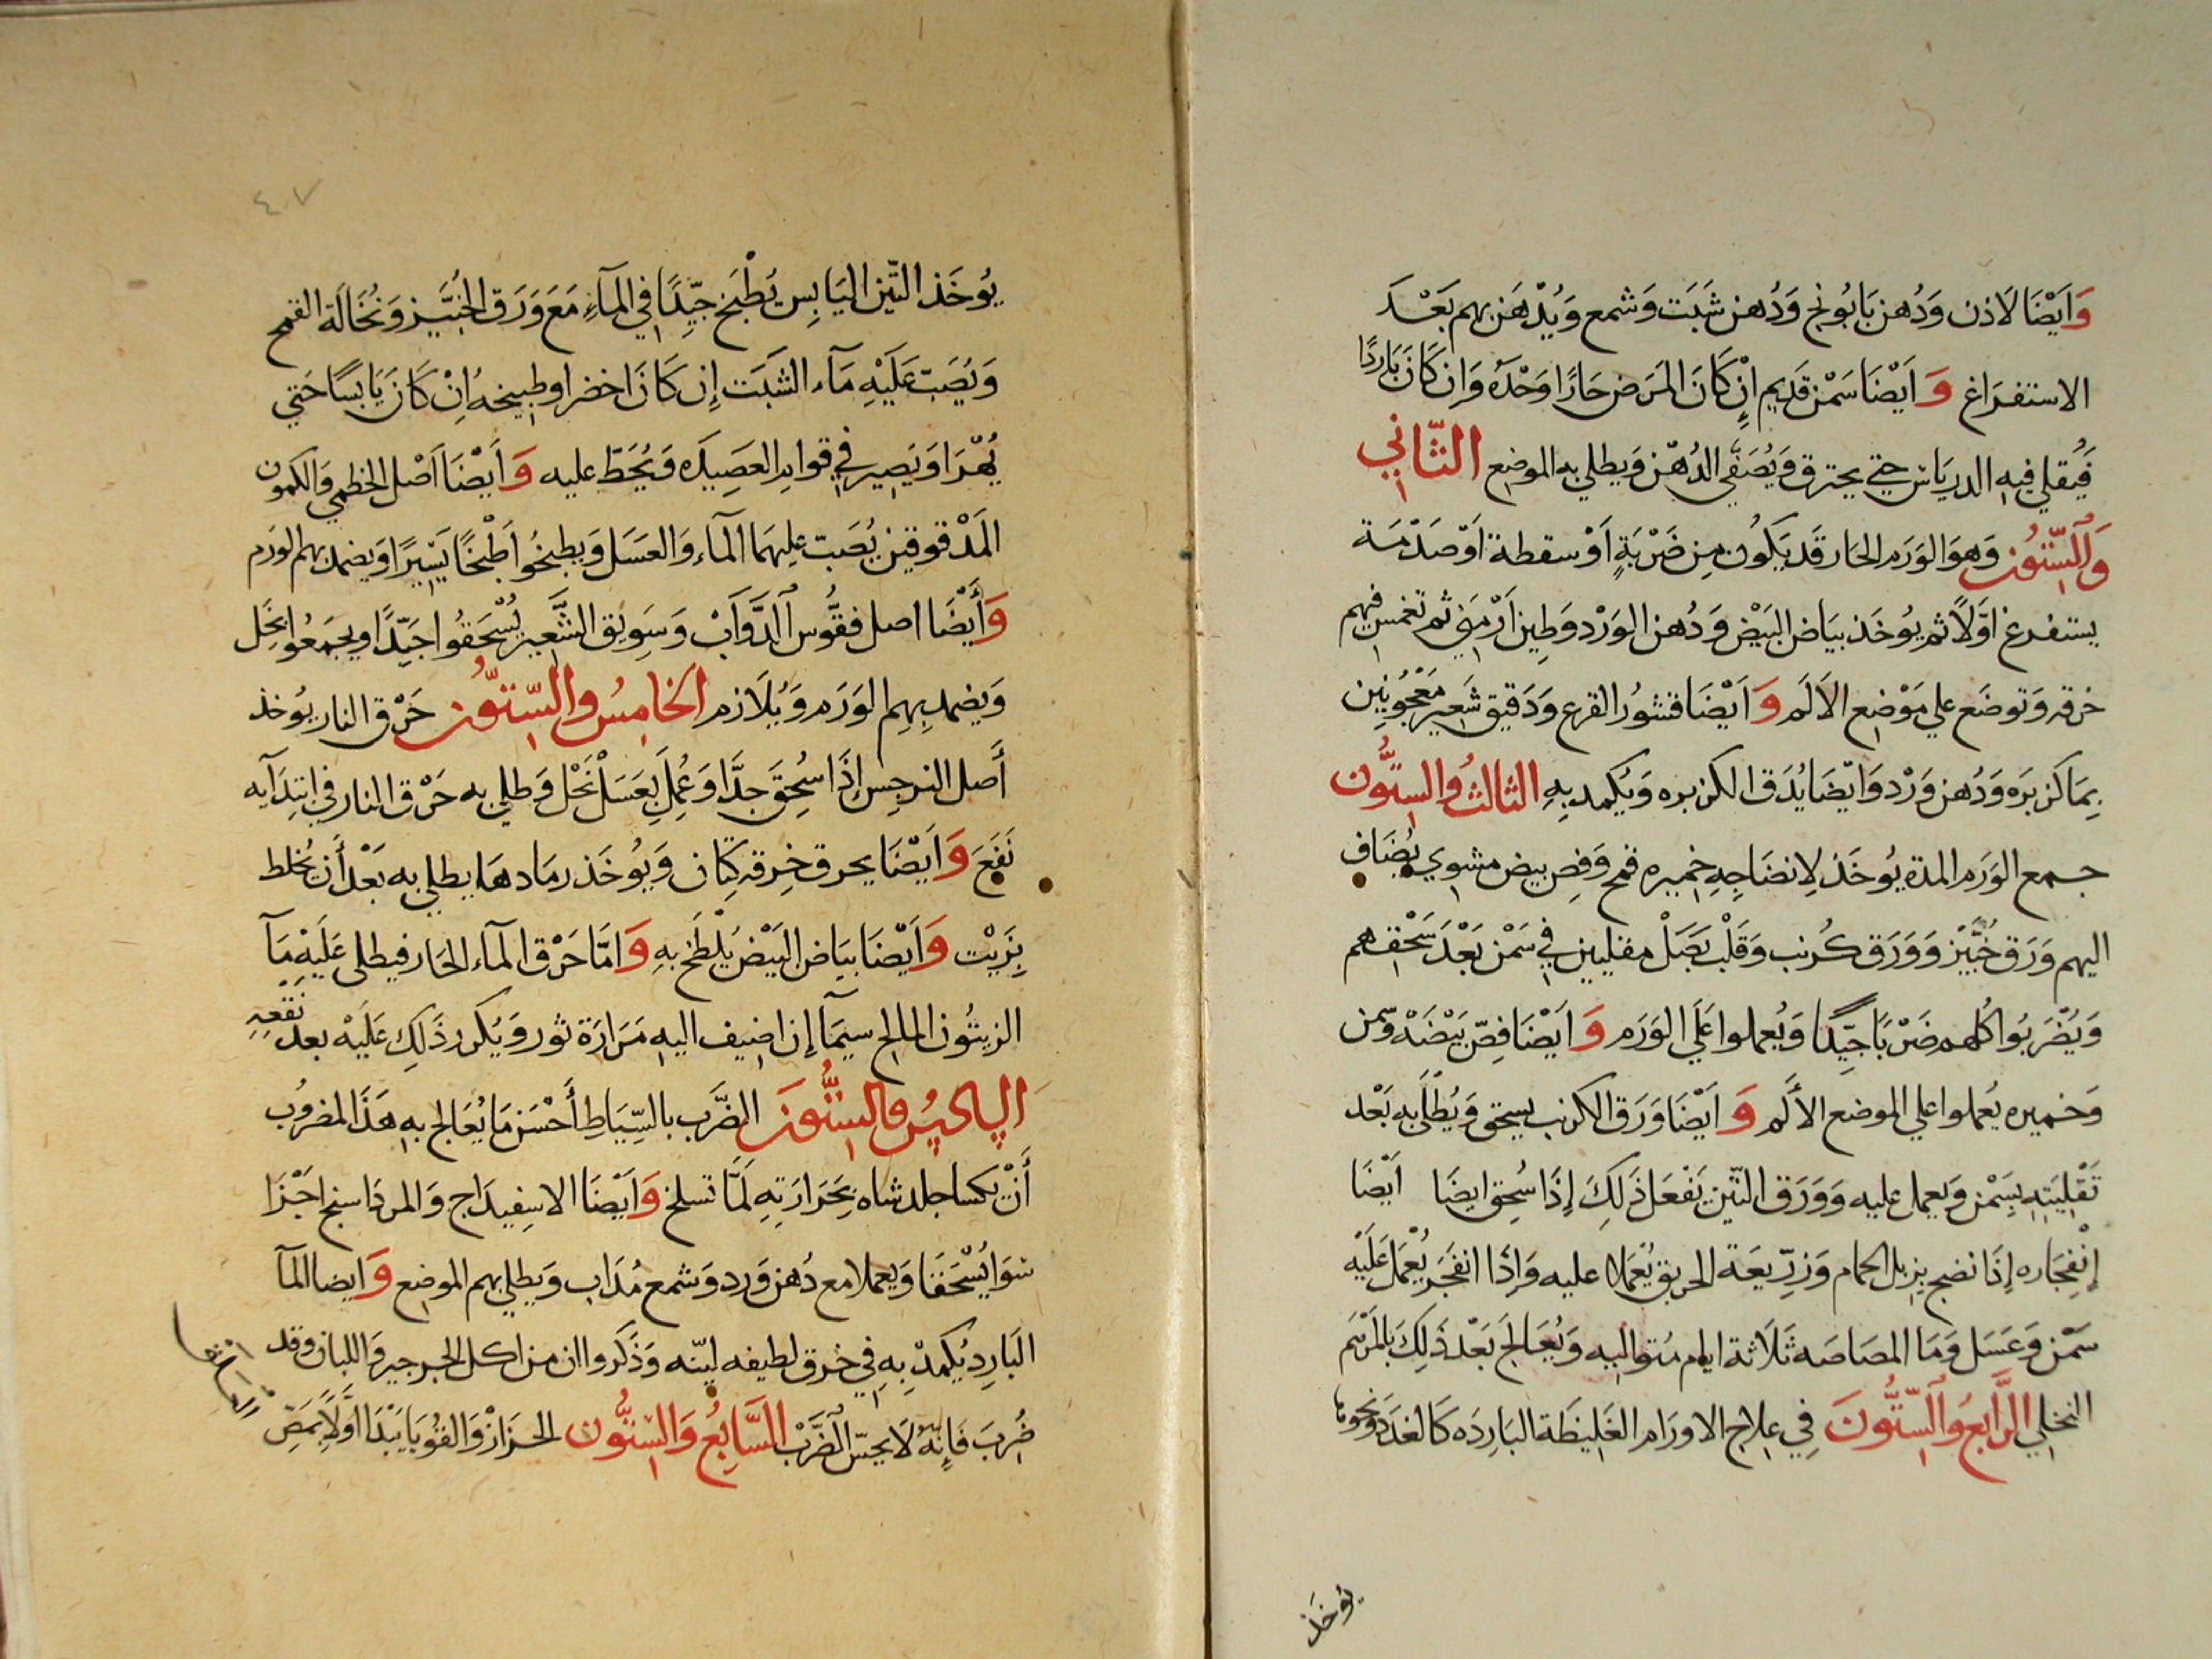 وَاَيْضَا لَاذن وَدُهن بَابُونج وَدُهن شَبَت وَشمع وَيُدْهَن بهم بَعْدَ
الاستفرَاغ وَاَيْضَا سَمْن قَدِيم اِنْ كَانَ المَرَض حَارًا وَحْدَهُ وَاِن كَانَ بَارِدًا
فَيُقلي فيه الدريَاس حتي يحترق وَيُصَفَّي الدُهْن وَيطلي به الموضع الثَّانِي
وَالسِّتُّون وَهوَ الوَرَم الحَار قَد يَكُون مِن ضَرْبَةٍ اَوْ سقطة اَوْ صَدْمَة
يستفرغ اوَّلًا ثم يوُخَذ بيَاض البَيْض وَدُهن الوَرْد وَطِين اَرْمَنِي ثم تغمس فيهم
خرقه وَتوضَع علي مَوْضِع الاَلَم وَاَيْضَا قشوُر القرع وَدَقيق شَعِير مَعْجُونِين
بِمَا كزبَره وَدُهن وَرْد وَاَيْضَا يُدَق الكزبره وَيُكمد بِهِ الثالثُ والسِتُّون
جمع الوَرَم المدة يُوخَذ لِانضَاجِهِ خميره قمح وَفِص بيض مشوي يُضَاف
اليهم وَرَق خُبَّيْز وَوَرَق كُرنب وَقَلْب بَصَلْ مقليين في سَمْن بَعْدَ سَحْقهم
وَيُضْرَبُوا كُلهم ضَرْبًا جَيِّدًا وَيُعملوا عَلَي الوَرَم وَاَيْضَا فِصّ بَيْضَهْ وَسمن
وَخميره يُعملوا علي الموضع الأَلَم وَاَيْضَا وَرَق الكرنب يسحق وَيُطْلَا به بَعْد
تَقْلِيَتِهِ بِسَمْن وَيعمل عليه وَوَرَق التّين يَفْعَل ذَلِكَ إِذَا سُحِق ايضَا اَيْضَا
اِنْفِجَاره إِذَا نضج بزبل الحمام وَزرِّيعَة الحريق يُعْمَلا عليه وَإِذَا انفَجَر يُعْمَل عَلَيْه
سَمْن وَعَسَل وَمَا المصَاصَه ثَلَاثة ايام مُتواليه وَيُعَالَج بَعْد ذَلِكَ بالمَرْهَم
النخلي الرَّابعُ وَالسِّتُّونَ فِي علاج الاورَام الغَلِيظَة البَارِدَه كَالغدَد وَنحوها
يوخَذ
٤٧
يُوخَذ التّين اليَابِس يُطْبَخ جيِّدًا في المآءِ مَعَ وَرَق الخُبَّيز وَنُخَالَة القمح
وَيُصَبّ عَلَيْهِ مَآء الشَبَت إِن كَانَ اخضر او طبيخه اِنْ كَانَ يَابسًا حَتي
يُهْرَا وَيَصِير في قوام العَصِيدَه وَيُحَطّ عليه وَأَيْضَا اَصْل الخطمي وَالكمون
المَدْقوقين يُصَبّ عليهمَا المآء وَالعسَل وَيطبخُوا طْبخًا يَسِيرًا وَيضمد بهم الورَم
وَأَيْضَا اصل فقُّوس الدَّوَابْ وَسَوِيق الشَّعِير يُسْحَقُوا جَيِّدًا ويجمَعُوا بخَل
وَيضمد بِهِم الوَرَم وَيُلَازم الخامِسُ والسِّتُّون حَرْق النار يوُخذ
أَصل النرجِس إِذَا سُحِقَ جدًّا وَعُمِلَ بَعَسَلْ نَحْل وَطلي به حَرْق النار في ابتدَآيه
نَفَعَ وَاَيْضَا يحرق خِرقه كِتّان وَيوُخَذ رمَادهَا يطلي به بَعْد أَن يُخلط
بِزَيْت وَاَيْضَا بيَاض البَيْض يُلْطَخ بهِ وَامَّا حَرْق المآء الحَار فيطلى عَلَيْه مَآ
الزيتُون المالح سيمَا إِن اضيف اليه مَرَارَة ثور وَيُكرر ذَلِك عَلَيْهْ بعد نقعِهِ
السادِسُ والستُّونَ الضَّرب بالسِّيَاطِ أَحْسَن مَا يُعَالج بهِ هَذَا المضروُب
أَنْ يكسا جلد شاه بحَرَارَتِهِ لَمَّا تسلخ وَاَيْضَا الاسِفيدَاج وَالمردَاسنج اجْزَا
سَوَا يُسْحَقَا وَيعملا مع دُهن وَرد وَشمع مُذَاب وَيطلي بهم الموضع وَايضا المآ
البَارِد يُكمدْ بِهِ فِي خرق لطيفه ليّنه وَذَكَروا ان من اكل الجرجير وَاللبان وقد
ضُرِبَ فَاِنّهُ لَا يحسّ الضَّرْب السَّابِعُ وَالسِّتُّون الحزَازْ وَالقوُبَا يَبْدَا اوَّلًا بمَصّ